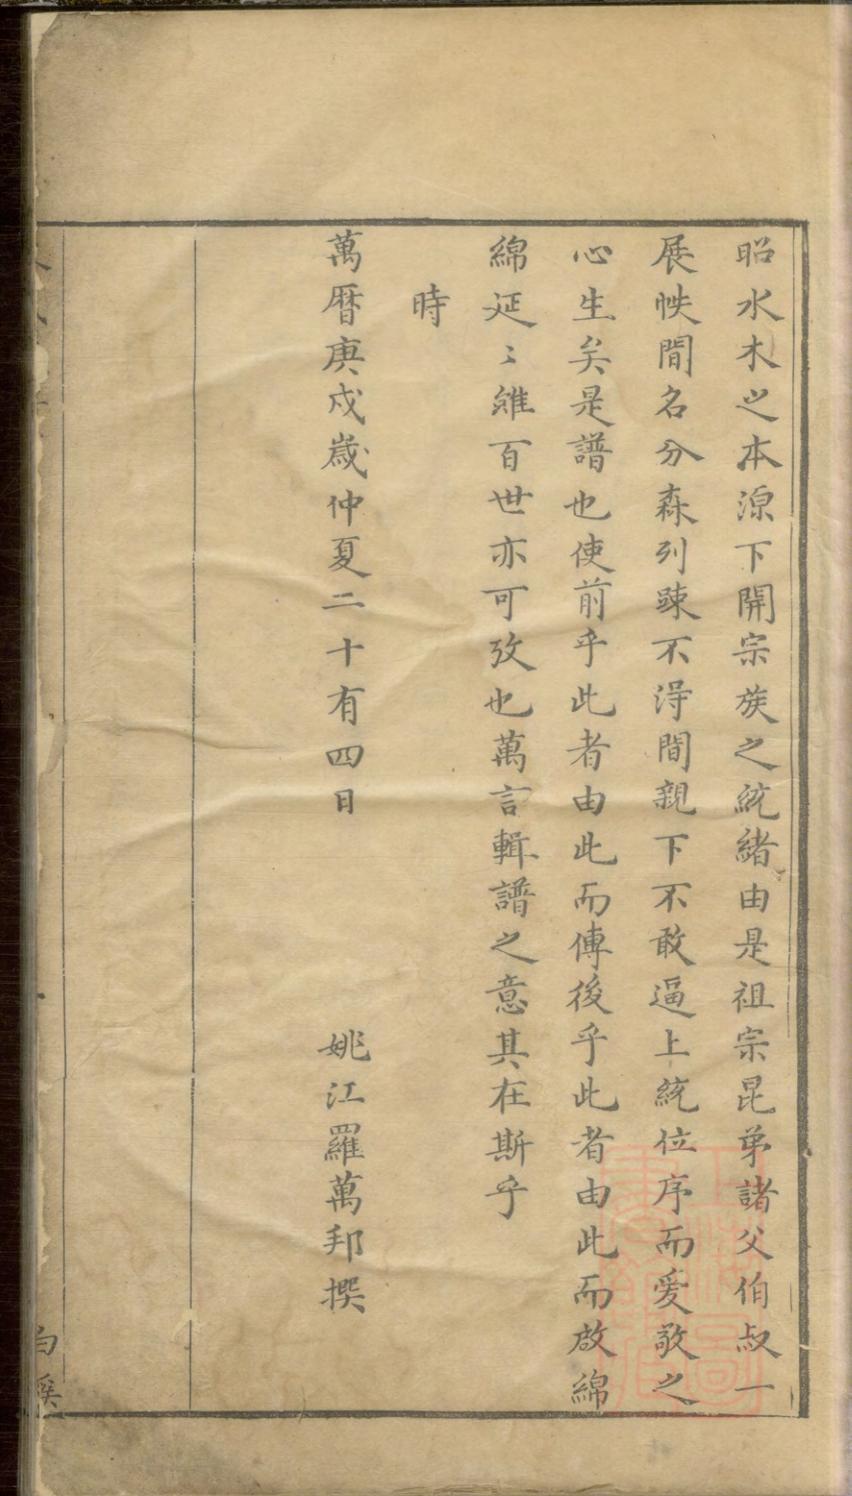 昭水木之本源下開宗族之統緒由是祖宗昆弟諸父伯叔一
展帙間名分森列踈不淂間親下不敢逼上統位序而爱敬之
心生矣是譜也使前乎此者由此而傳後乎此者由此而啟綿
綿延〻雖百世亦可攷也萬言輯譜之意其在斯乎
時
萬曆庚戍歲仲夏二十有四日 姚江羅萬邦撰